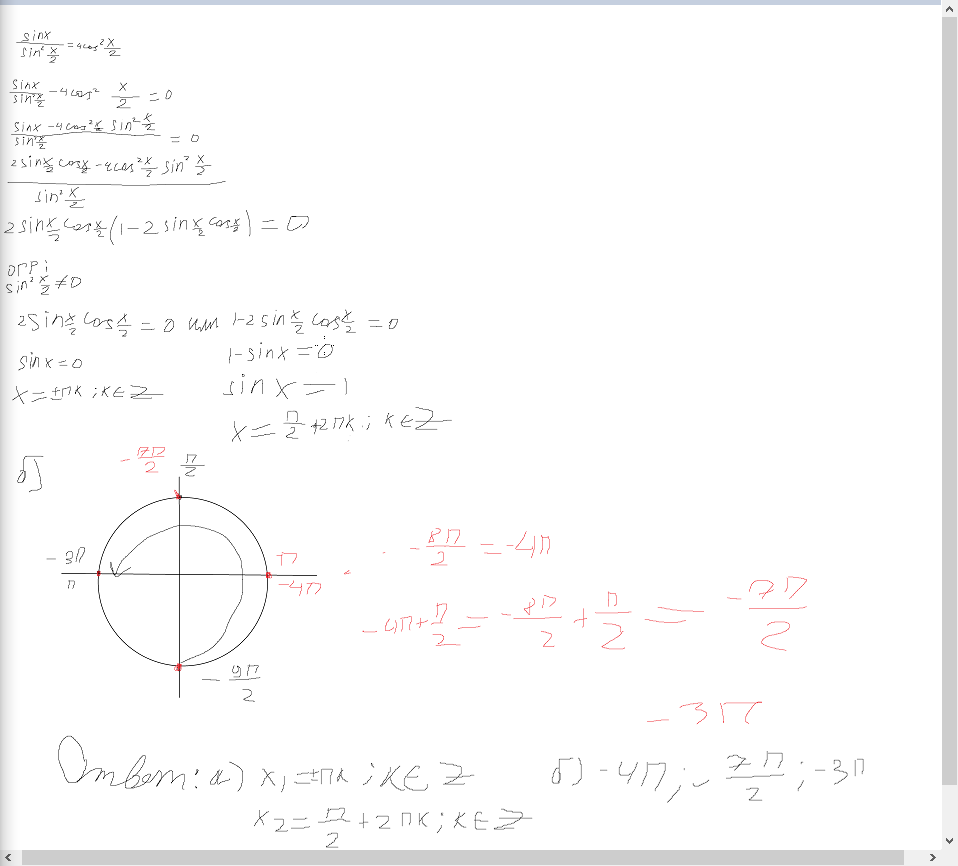 sinx/sin² x/2 = 4cos² x/2
sinx/sin² x/2 - 4cos² x/2 = 0
(sinx - 4cos² x/2 sin² x/2)/sin² x/2 = 0
(2sin x/2 cos x/2 - 4cos² x/2 sin² x/2)/sin² x/2
2sin x/2 cos x/2 (1 - 2sin x/2 cos x/2) = 0
огр:
sin² x/2 ≠ 0
2sin x/2 cos x/2 = 0 или 1-2sin x/2 cos x/2 = 0
sinx = 0
1-sinx = 0
x = ±πk ; k∈Z
sin x = 1
x = π/2 + 2πk ; k∈Z
б)
-7π/2 π/2
-3π
π
π
-4π
-9π/2
-8π/2 = -4π
-4π + π/2 = -8π/2 + π/2 = -7π/2
-3π
Ответ: а) x₁ = ±πk ; k∈Z б) -4π ; -7π/2 ; -3π
x₂ = π/2 + 2πk ; k∈Z